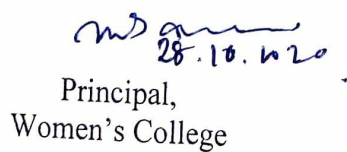 28.10.2020
Principal,
Women's College